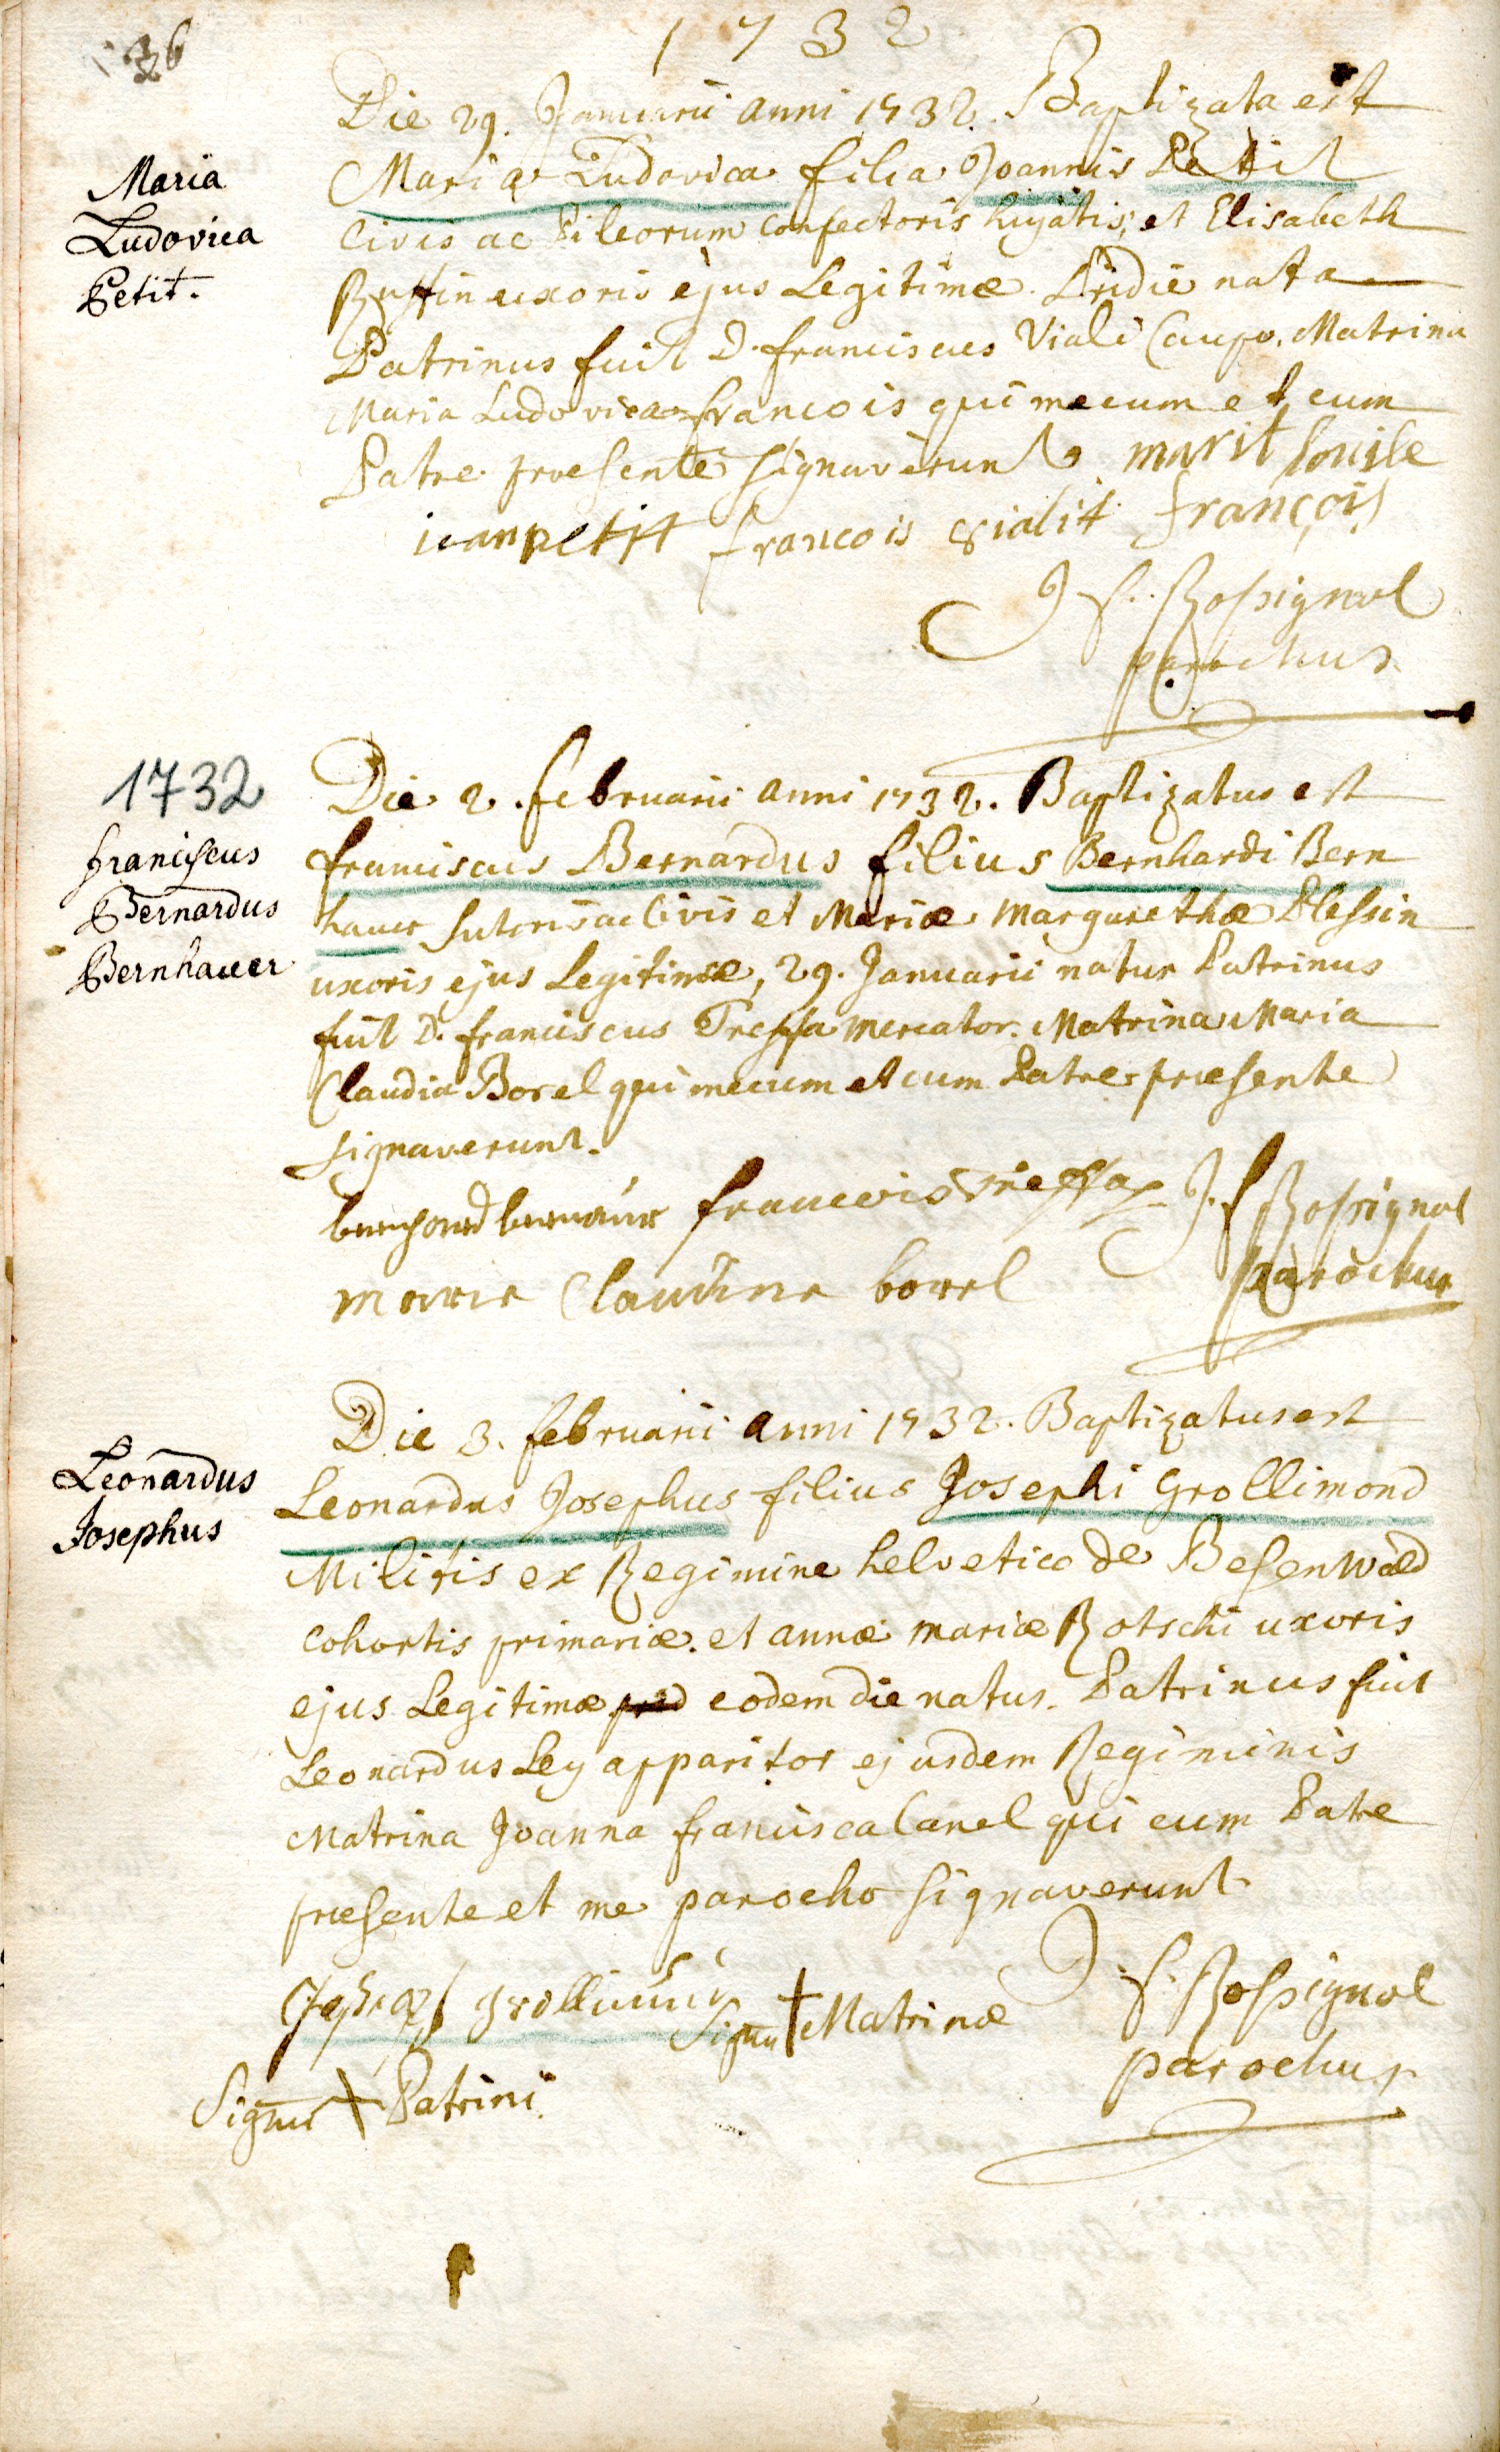 36
1732
Die 29. Januarii anni 1732. Baptizata est
Maria Ludovica filia Joannis Petit
Civis ac Pileorum confectoris hujatis, et Elisabeth
Ruffin uxoris ejus Legitimæ. Pridie nata
Patrinus fuit D. franciscus Viali Caupo. Matrina
Maria Ludovica francois qui mecum et cum
Patre præsente signaverunt. marit louise
iean petit francois vialit françois
J f. Rossignol
parochus
Maria
Ludovica
Petit.
1732
franciscus
Bernardus
Bernhauer
Die 2. februarii anni 1732. Baptizatus est
franciscus Bernardus filius Bernhardi Bern
hauer sutoris ac Civis et Mariæ Margarethæ Plessin
uxoris ejus Legitimæ, 29. Januarii natus Patrinus
fuit D. franciscus Tressa mercator. Matrina Maria
Claudia Borel qui mecum et cum Patre præsente
signaverunt.
francois J. f Rossignol
parochus
marie Claudine borel
Leonardus
Josephus
Die 3. februarii anni 1732. Baptizatus est
Leonardus Josephus filius Josephi Grollimond
Militis ex Regimine helvetico de Besenwald
cohortis primariæ. et annæ mariæ Rotschi uxoris
ejus Legitimæ eodem die natus. Patrinus fuit
Leonardus Ley apparitor ejusdem Regiminis
Matrina Joanna francisca Canel qui cum Patre
præsente et me parocho signaverunt.
Signu † Matrinæ J. f. Rossignol
parochus
Signu + Patrini